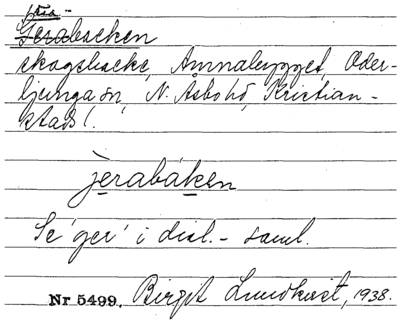 Gerabacken
skogsbacke, Amnabygget, Oder-
ljunga sn, N. Åsbo hd, Kristian-
stads l.
jerabáken
Se 'ger' i dial.- saml.
Nr 5499. Birgit Lundkvist, 1938.